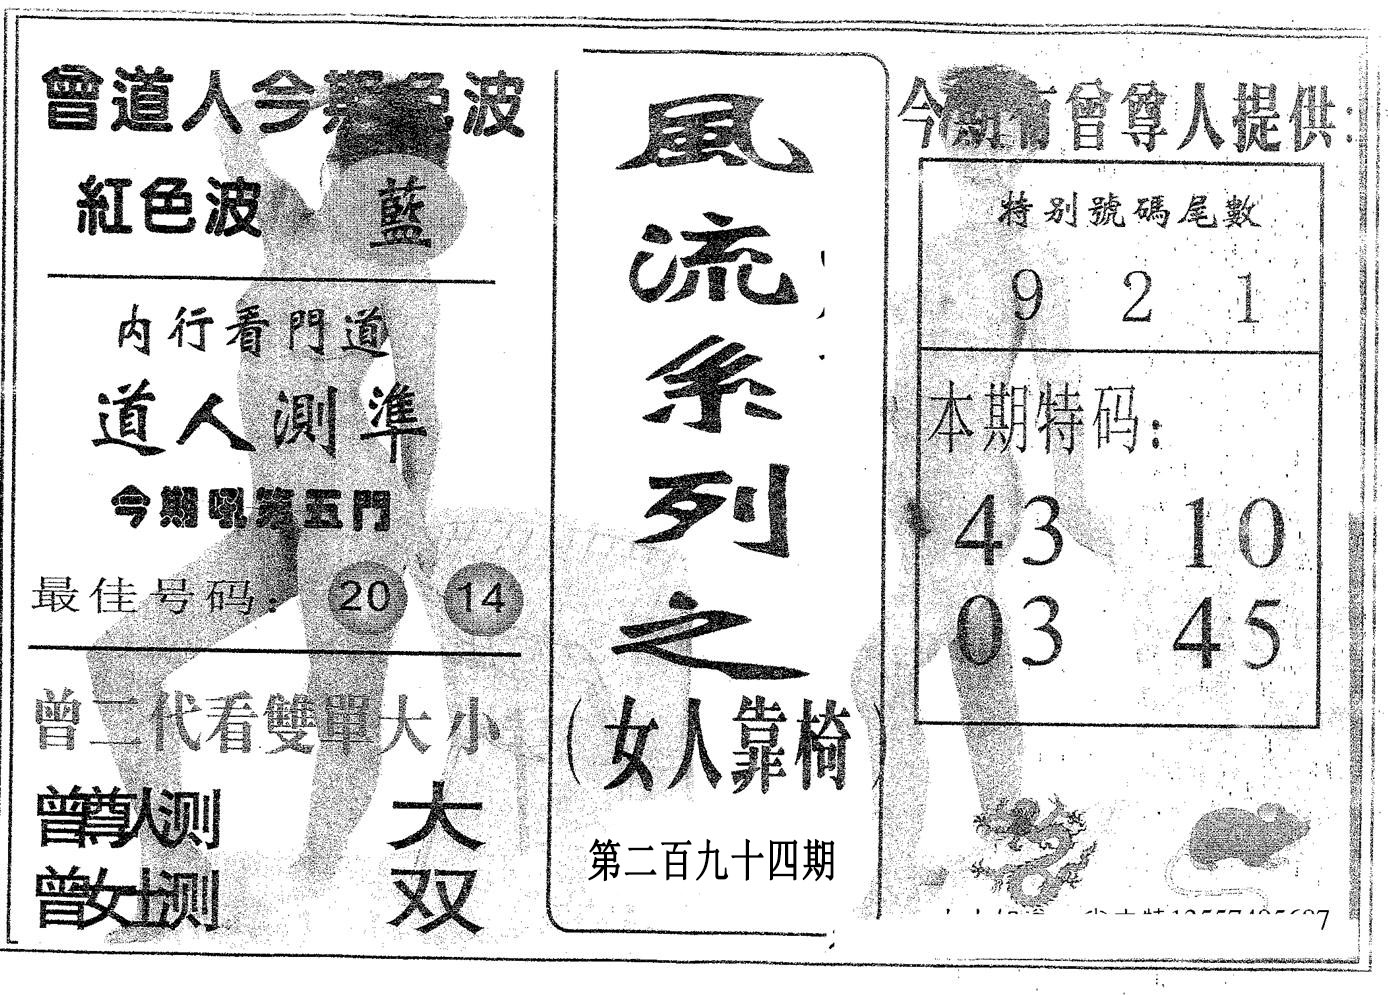 曾道人今期色波
紅色波 藍
内行看門道
道人測準
今期吼第五門
最佳号码: 20 14
曾二代看雙單大小
曾尊人测 大
曾女士测 双
風流系列之
(女人靠椅)
第二百九十四期
今期有曾尊人提供:
特别號碼尾數
9 2 1
本期特码:
43 10
03 45